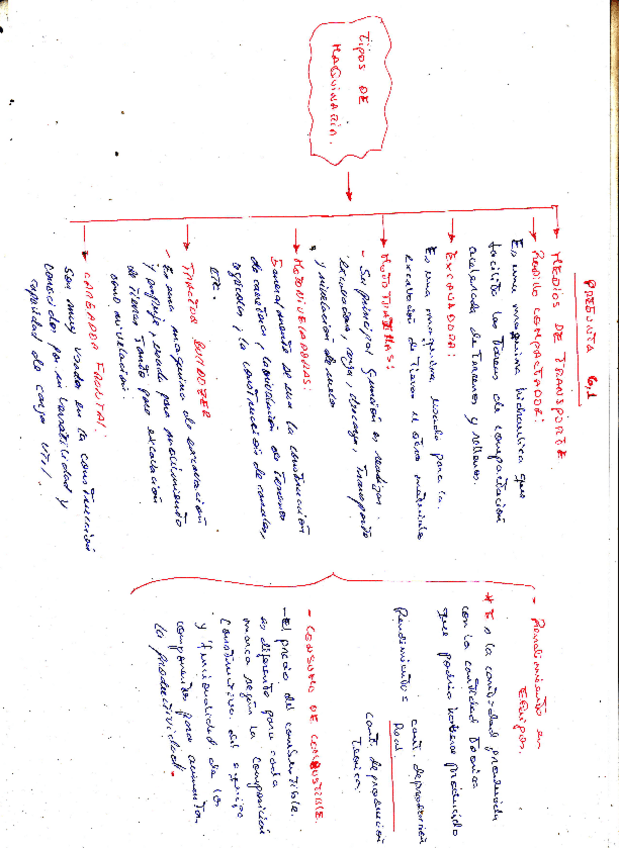 PREGUNTA 6,1
TIPOS DE
MAQUINARIA.
MEDIOS DE TRANSPORTE
RODILLO COMPACTADOR:
Es una maquina hidraulica que
facilita las tareas de compactación
acelerada de terrenos y rellenos.
EXCAVADORA:
Es una maquina usada para la
excavación de tierra u otros materiales
MOTOTRAILLAS:
- Su principal función es realizar
excavadora, carga, descarga, transporte
y nivelación de suelo
MOTONIVELADORAS:
Generalmente se usa la construcción
de carretera, la nivelación de terrenos
agricolas, la construcción de canales,
etc.
TRACTOR BULDOZER
- Es una maquina de excavación
y empuje, usada para movimiento
de tierras tanto para excavación
como nivelación
CARGADORA FRONTAL:
son muy usados en la construcción
conocidas por su versatilidad y
capacidad de carga util
- Rendimiento en
Equipos.
* Es la cantidad producida
con la cantidad teorica
que podria haberse producido
Rendimiento = cant. de produccion
Real.
cant. de produccion
teorica.
- CONSUMO DE COMBUSTIBLE.
- El precio del combustible
es diferente para cada
marca según la composición
constructiva del equipo
y funcionalidad de los
componentes para aumentar
la productividad.